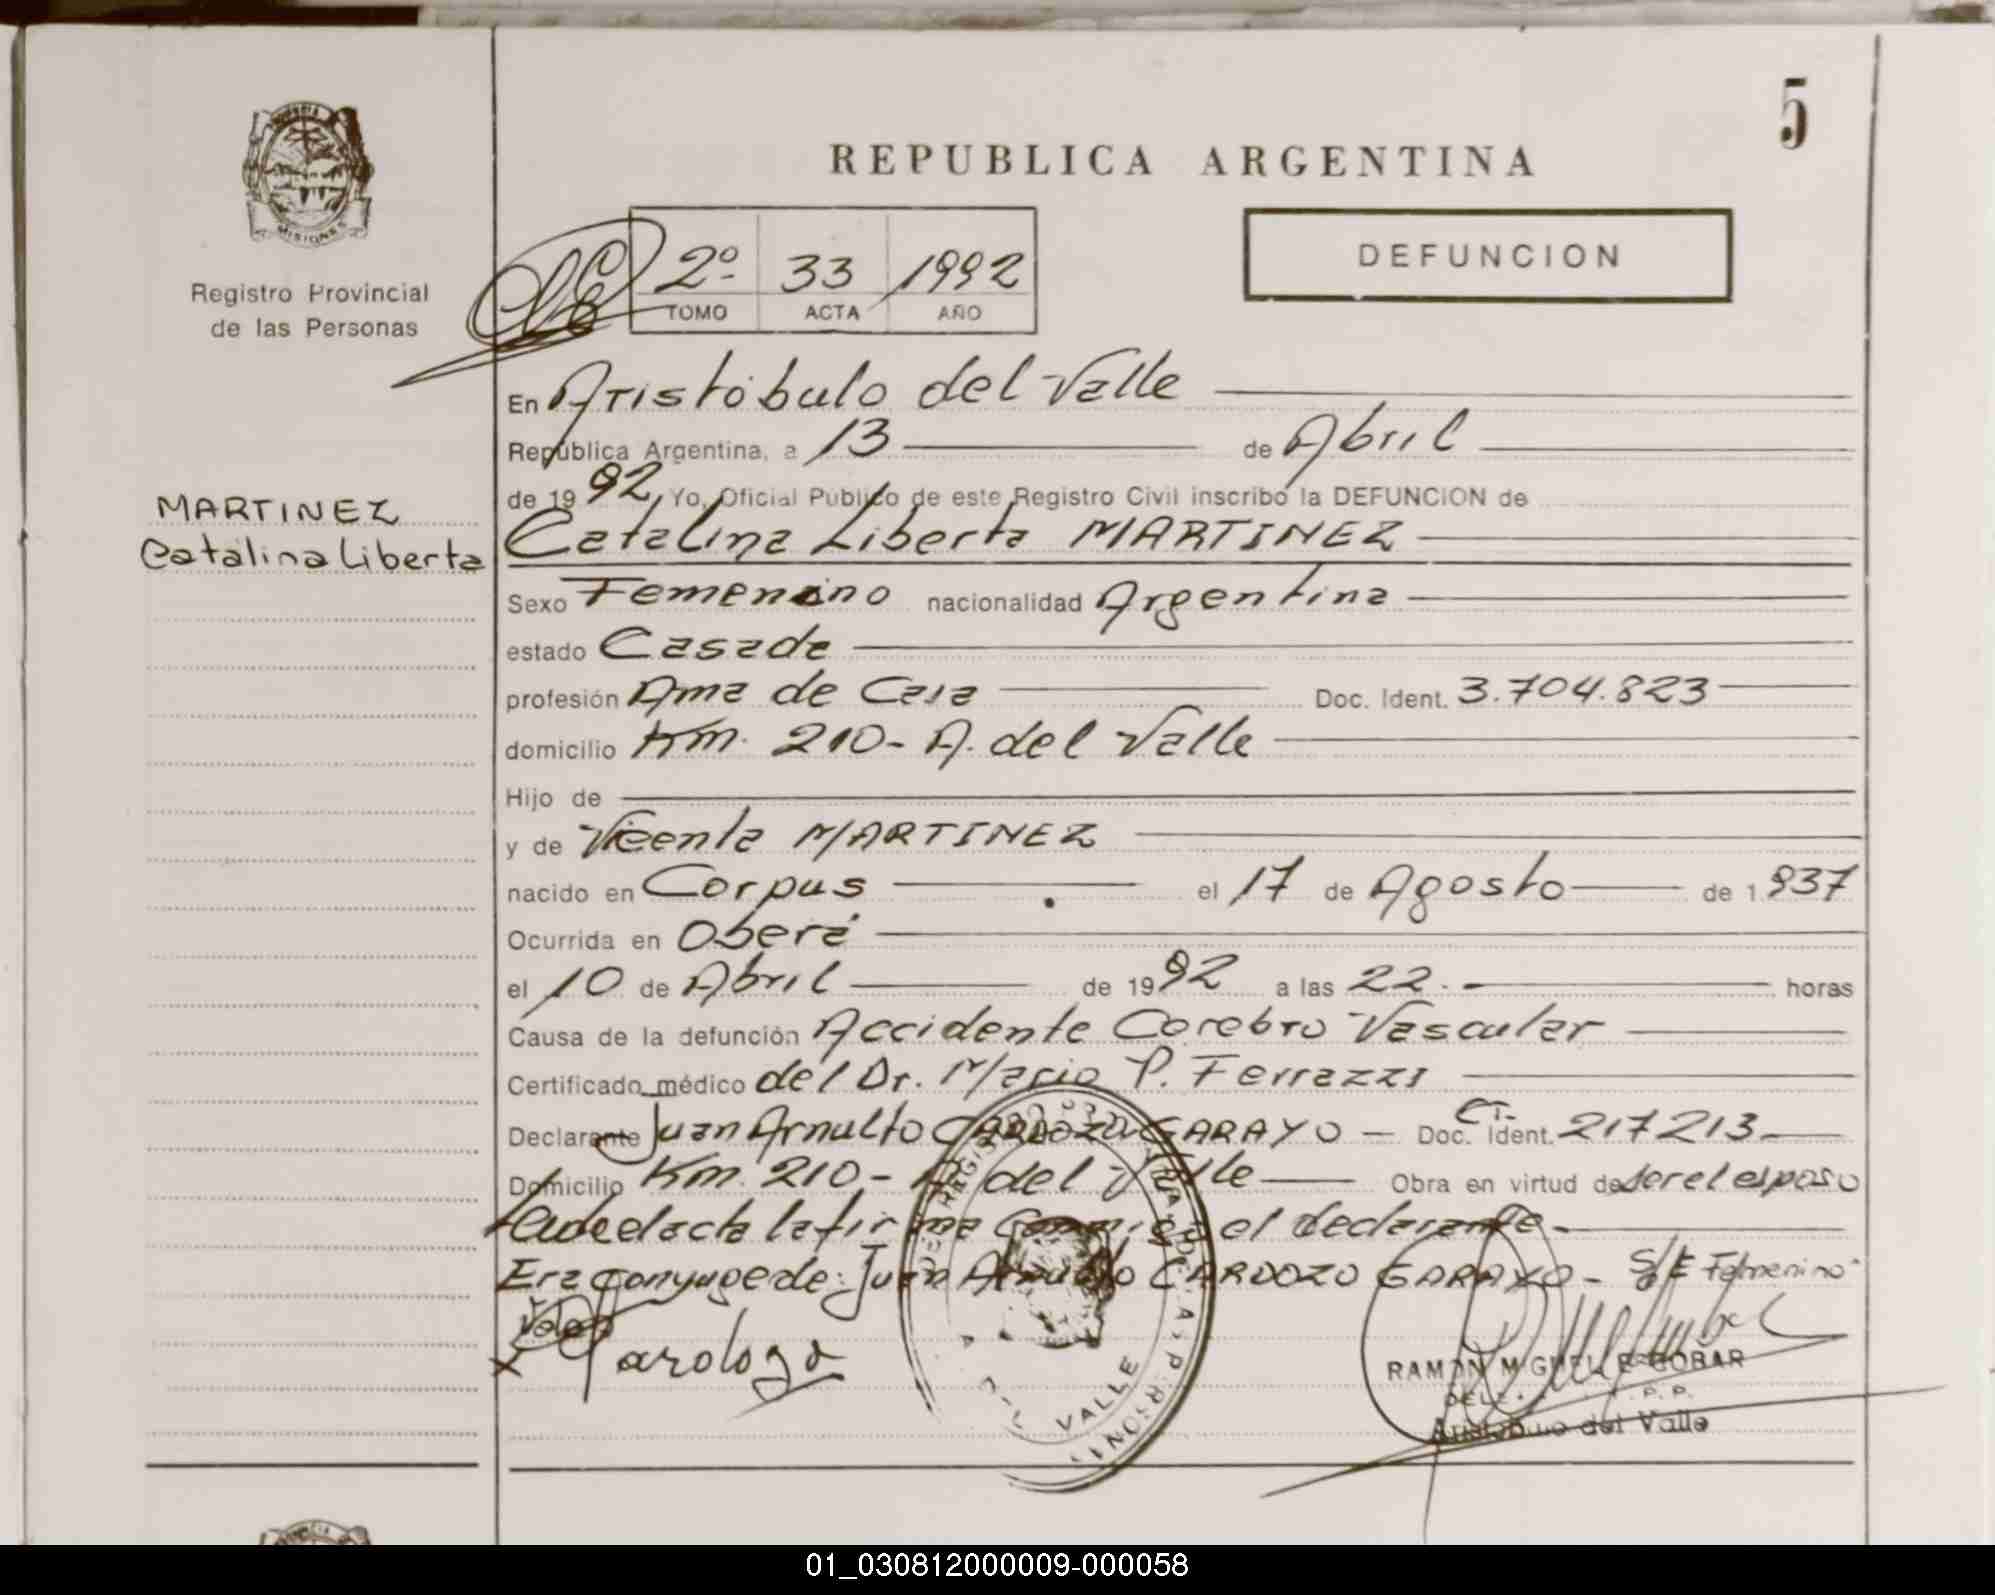 5
REPUBLICA ARGENTINA
MISIONES
Registro Provincial
de las Personas
2º 33 1992
TOMO ACTA AÑO
DEFUNCION
MARTINEZ
Catalina Liberta
En Aristóbulo del Valle
República Argentina, a 13 de Abril
de 1992, Yo, Oficial Público de este Registro Civil inscribo la DEFUNCION de
Catalina Liberta MARTINEZ
Sexo Femenino nacionalidad Argentina
estado Casada
profesión Ama de Casa Doc. Ident. 3.704.823
domicilio Km. 210- A. del Valle
Hijo de
y de Vicenta MARTINEZ
nacido en Corpus el 17 de Agosto de 1.937
Ocurrida en Oberá
el 10 de Abril de 1992 a las 22.- horas
Causa de la defunción Accidente Cerebro Vascular
Certificado médico del Dr. Mario P. Ferrazzi
Declarante Juan Arnulfo CARDOZO GARAYO - Doc. Ident. C.I. 217213
Domicilio Km. 210- A. del Valle Obra en virtud de ser el esposo
el acta la firma conmigo el declarante.-
Era conyuge de: Juan Arnulfo CARDOZO GARAYO - S/E Femenino
Vale
x
RAMON MIGUEL ESCOBAR
Aristobulo del Valle
VALLE
01_030812000009-000058